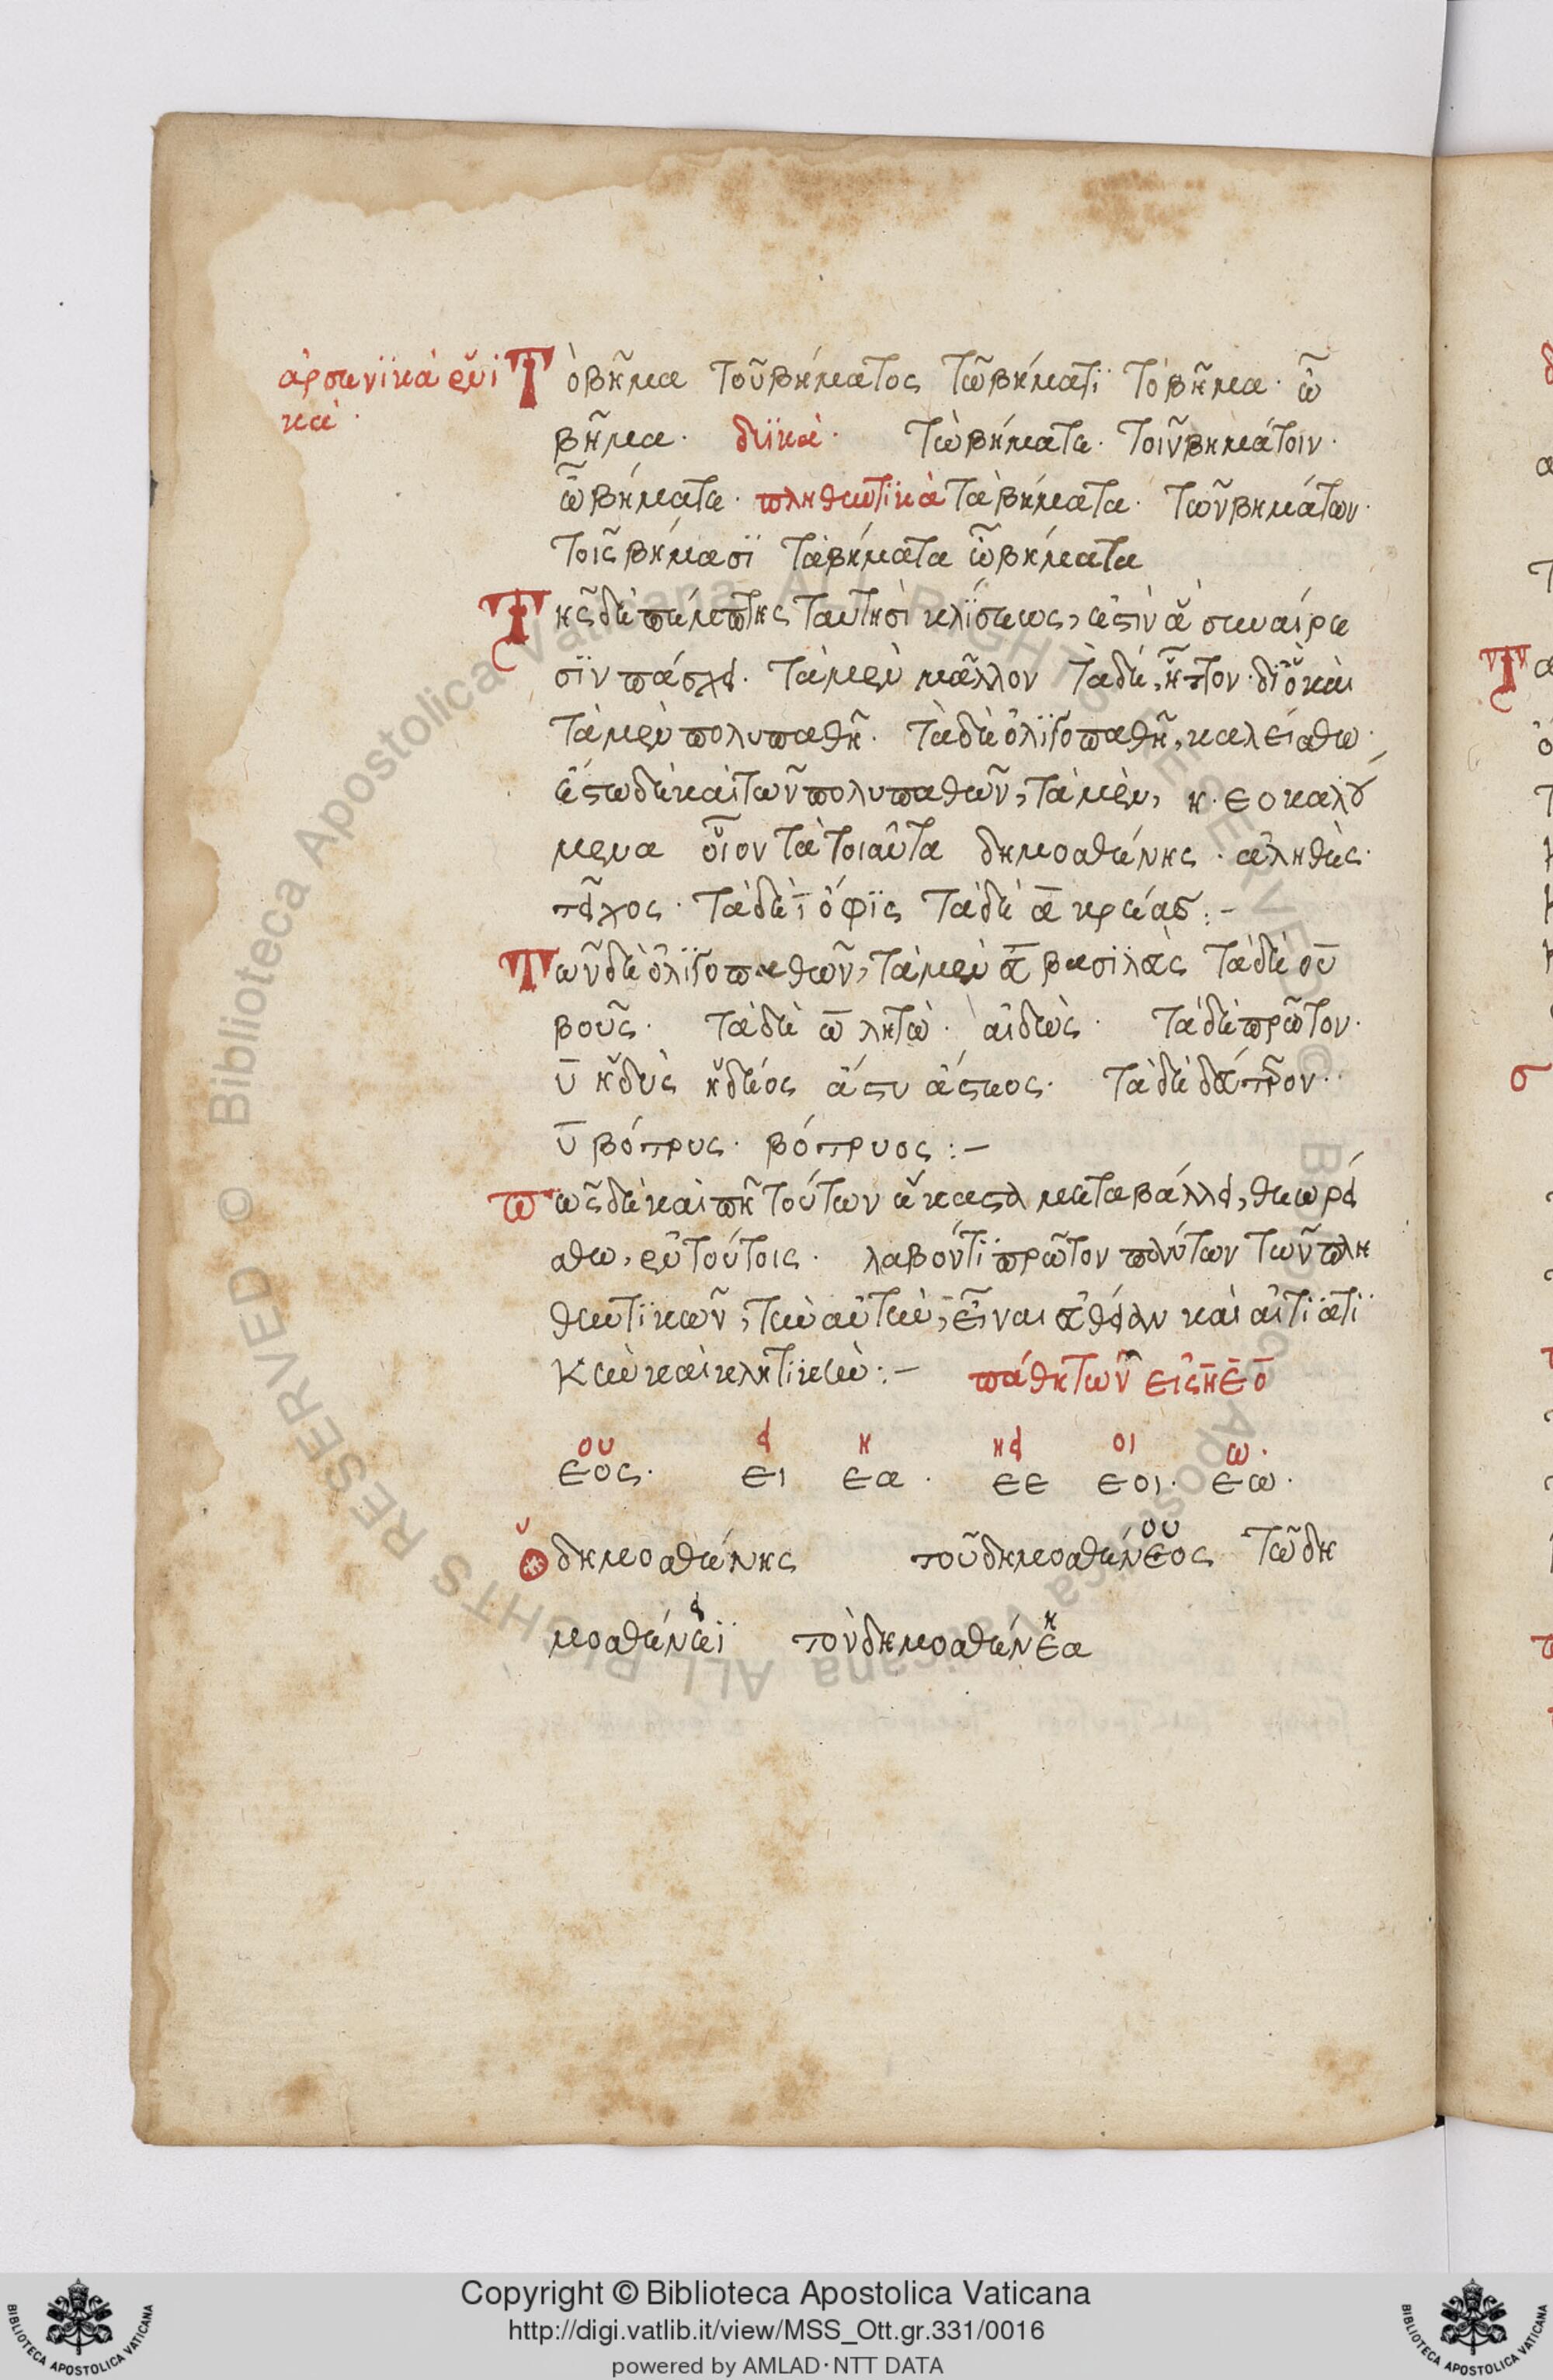 ἀρσενϊκὰ ἑνι
κὰ·
Τὸ βῆμα τοῦ βήματος τῶ βήματϊ τὸ βῆμα· ὦ
βῆμα· δυϊκὰ· τὼ βήματε· τοῖν βημάτοιν·
ὦ βήματε· πληθυντϊκὰ τὰ βήματα· τῶν βημάτων·
τοῖς βήμασϊ τὰ βήματα ὦ βήματα
Τῆς δὲ πέμπτης ταυτησὶ κλΐσεως, ἐστὶν ἃ συναίρε
σϊν πάσχει· τὰ μὲν μᾶλλον τὰ δὲ, ἧττον· δϊὸ καὶ
τὰ μὲν πολυπαθῆ· τὰ δὲ ὀλϊγοπαθῆ, καλείσθω·
ἔστω δὲ καὶ τῶν πολυπαθῶν, τὰ μὲν, η· εο καλού
μενα οἷον τὰ τοιαῦτα δημοσθένης· ἀληθὲς·
τεῖχος· τὰ δὲ ϊ ὄφϊς τὰ δὲ α κρέας:-
Τῶν δὲ ὀλϊγοπαθῶν, τὰ μὲν ευ βασϊλεὺς τὰ δὲ ου
βοῦς· τὰ δὲ ω λητὼ· αἰδὼς· τὰ δὲ πρῶτον·
υ ἡδὺς ἡδέος ἄστυ ἄστεος· τὰ δὲ δεύτερον·
υ βότρυς· βότρυος:-
Πῶς δὲ καὶ πῆ τούτων ἕκαστα μεταβάλλει, θεωρεί
σθω, ἐν τούτοις· λαβόντϊ πρῶτον πάντων τῶν πλη
θυντϊκῶν, τὴν αὐτὴν, εἶναι εὐθεῖαν καὶ αἰτϊατϊ
κὴν καὶ κλητϊκὴν:- πάθη τῶν εἰς η ε ο
ου ει η ηει οι ω·
εος· ει εα· εε εοι· εω·
Ὁ δημοσθένης τοῦ δημοσθένεος ου τῶ δη
μοσθένεϊ ει τὸν δημοσθένεα η
Copyright © Biblioteca Apostolica Vaticana
http://digi.vatlib.it/view/MSS_Ott.gr.331/0016
powered by AMLAD·NTT DATA